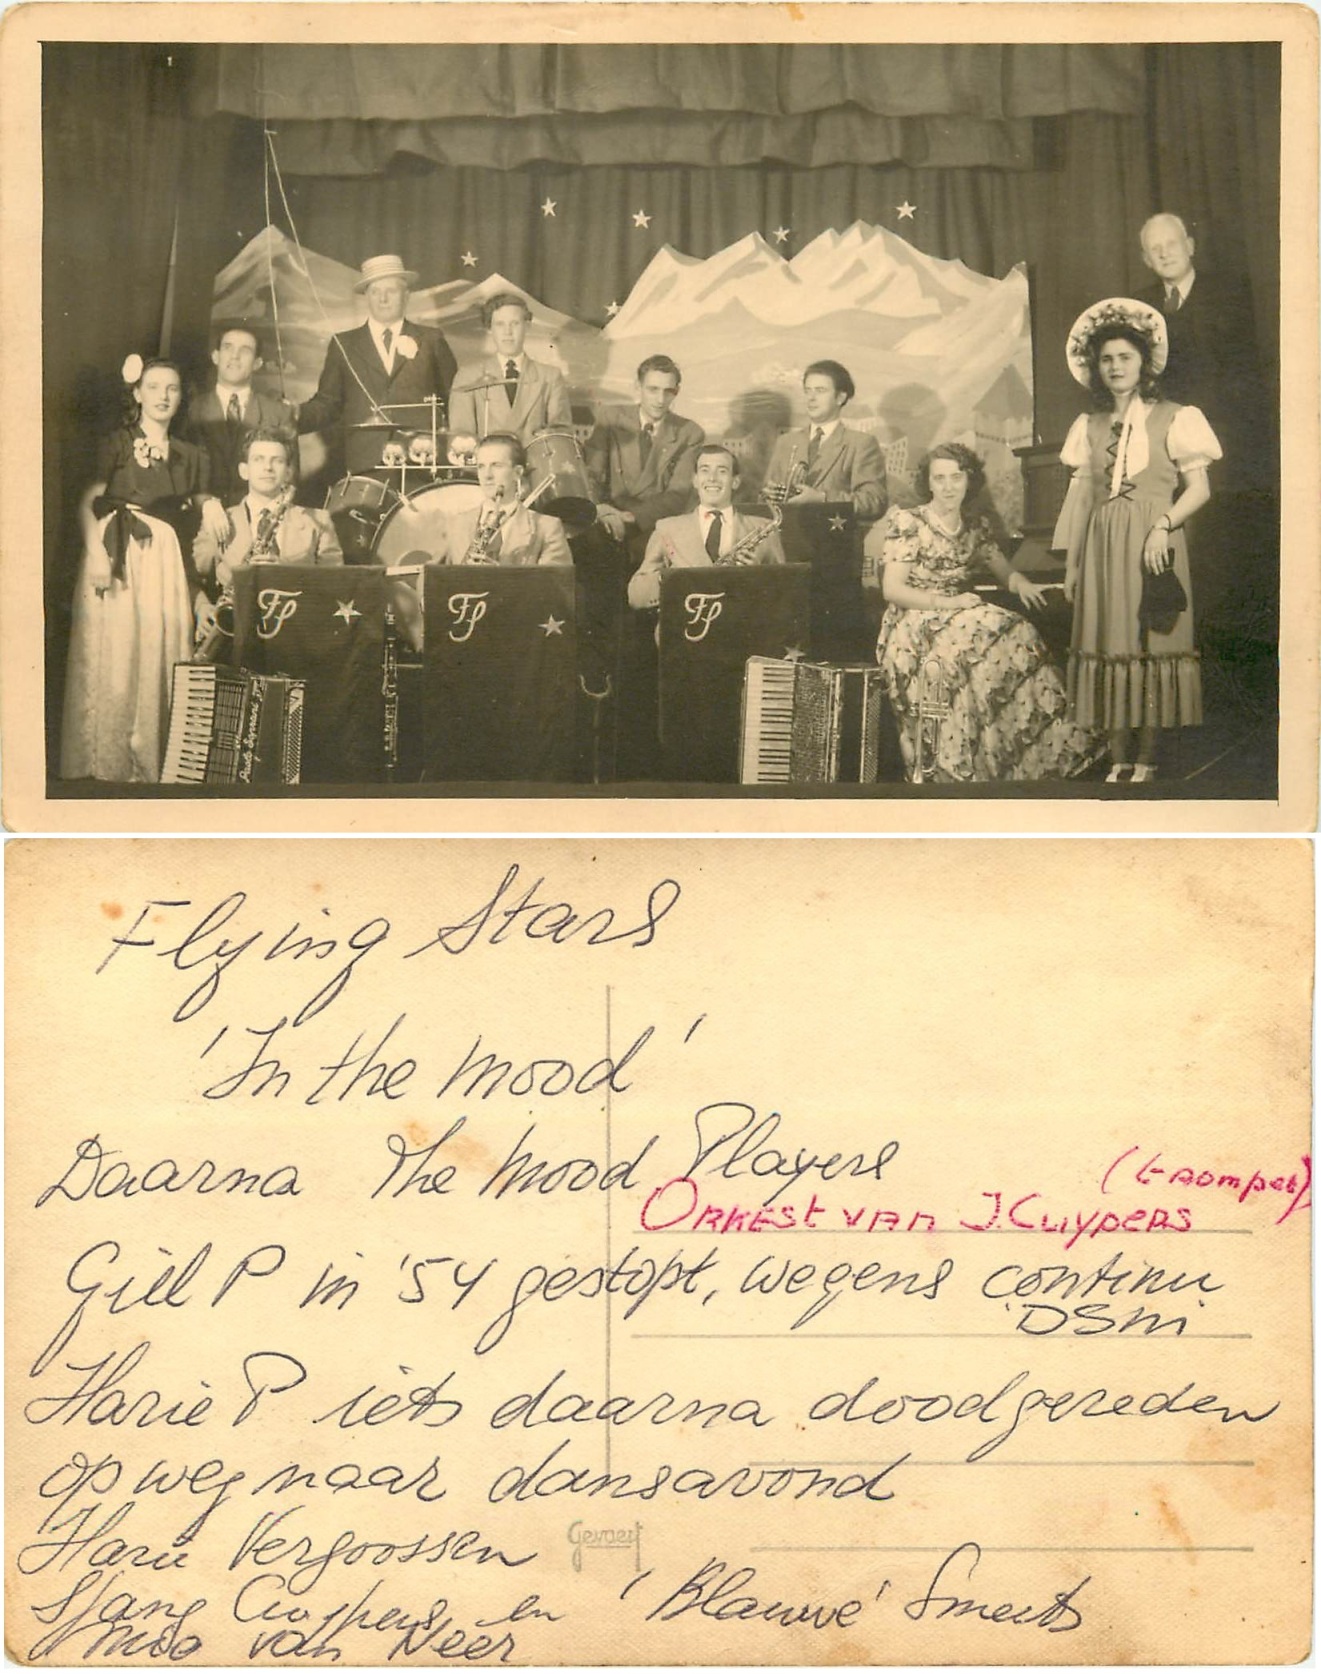 FS
FS
FS
Flying Stars
'In the mood'
Daarna The Mood Players
(trompet)
ORKEST VAN J. CUYPERS
Giel P in '54 gestopt, wegens continu
DSM
Harie P iets daarna doodgereden
op weg naar dansavond
Harie Vergoossen
Gevaert
Sjang Cuypers en 'Blauwe' Smeets
van Neer